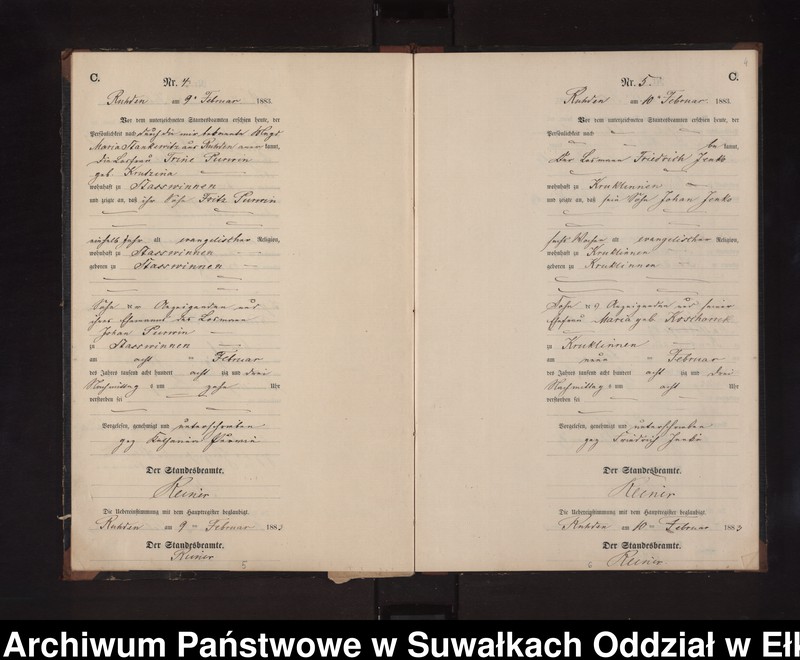 C.
Nr. 4.
Ruhden am 9n Februar 1883.
Vor dem unterzeichneten Standesbeamten erschien heute, der
Persönlichkeit nach durch die mir bekannte Magd
Maria Stankewitz aus Ruhden aner kannt,
die Losfrau Trine
geb.
wohnhaft zu Stasswinnen
und zeigte an, daß ihr Sohn Fritz
einhalb Jahr alt evangelischer Religion,
wohnhaft zu Stasswinnen
geboren zu Stasswinnen
Sohn der Anzeigenden und
ihres Ehemanns des Losmann
Johan
zu Stasswinnen
am acht Februar
des Jahres tausend acht hundert acht zig und drei
Nachmittag s um zehn Uhr
verstorben sei
Vorgelesen, genehmigt und unterschrieben
gez
Der Standesbeamte.
Reiner
Die Uebereinstimmung mit dem Hauptregister beglaubigt.
Ruhden am 9 ten Februar 1883
Der Standesbeamte.
Reiner
5
C.
Nr. 5.
Ruhden am 10n Februar 1883.
Vor dem unterzeichneten Standesbeamten erschien heute, der
Persönlichkeit nach
be kannt,
Der Losmann Friedrich Jenko
wohnhaft zu Kruklinnen
und zeigte an, daß sein Sohn Johan Jenko
sechs Wochen alt evangelischer Religion,
wohnhaft zu Kruklinnen
geboren zu Kruklinnen
Sohn des Anzeigenden und seiner
Ehefrau Maria geb.
zu Kruklinnen
am neun Februar
des Jahres tausend acht hundert acht zig und drei
Nachmittag s um acht Uhr
verstorben sei
Vorgelesen, genehmigt und unterschrieben
gez Friedrich Jenko
Der Standesbeamte.
Reiner
Die Uebereinstimmung mit dem Hauptregister beglaubigt.
Ruhden am 10 ten Februar 1883
Der Standesbeamte.
Reiner
6
Archiwum Państwowe w Suwałkach Oddział w Ełk